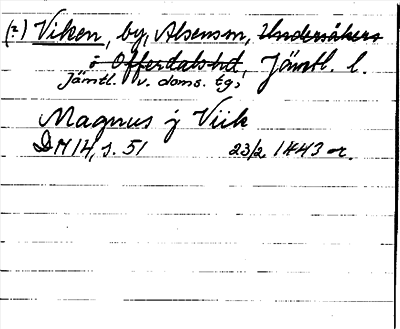 (?) Viken, by, Alsens sn, Undersåkers
o Offerdals hd, Jämtl. l.
Jämtl. v. doms. tg,
Magnus j Viik
DN 14, s. 51 23/2 1443 or.